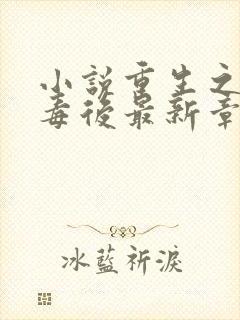 小說重生之
毒後最新章
冰藍祈淚